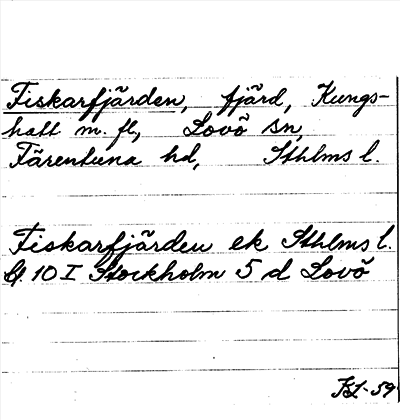 Fiskarfjärden, fjärd, Kungs-
hatt m. fl, Lovö sn,
Färentuna hd, Sthlms l.
Fiskarfjärden ek Sthlms l.
bl. 10 I Stockholm 5 d Lovö
-59